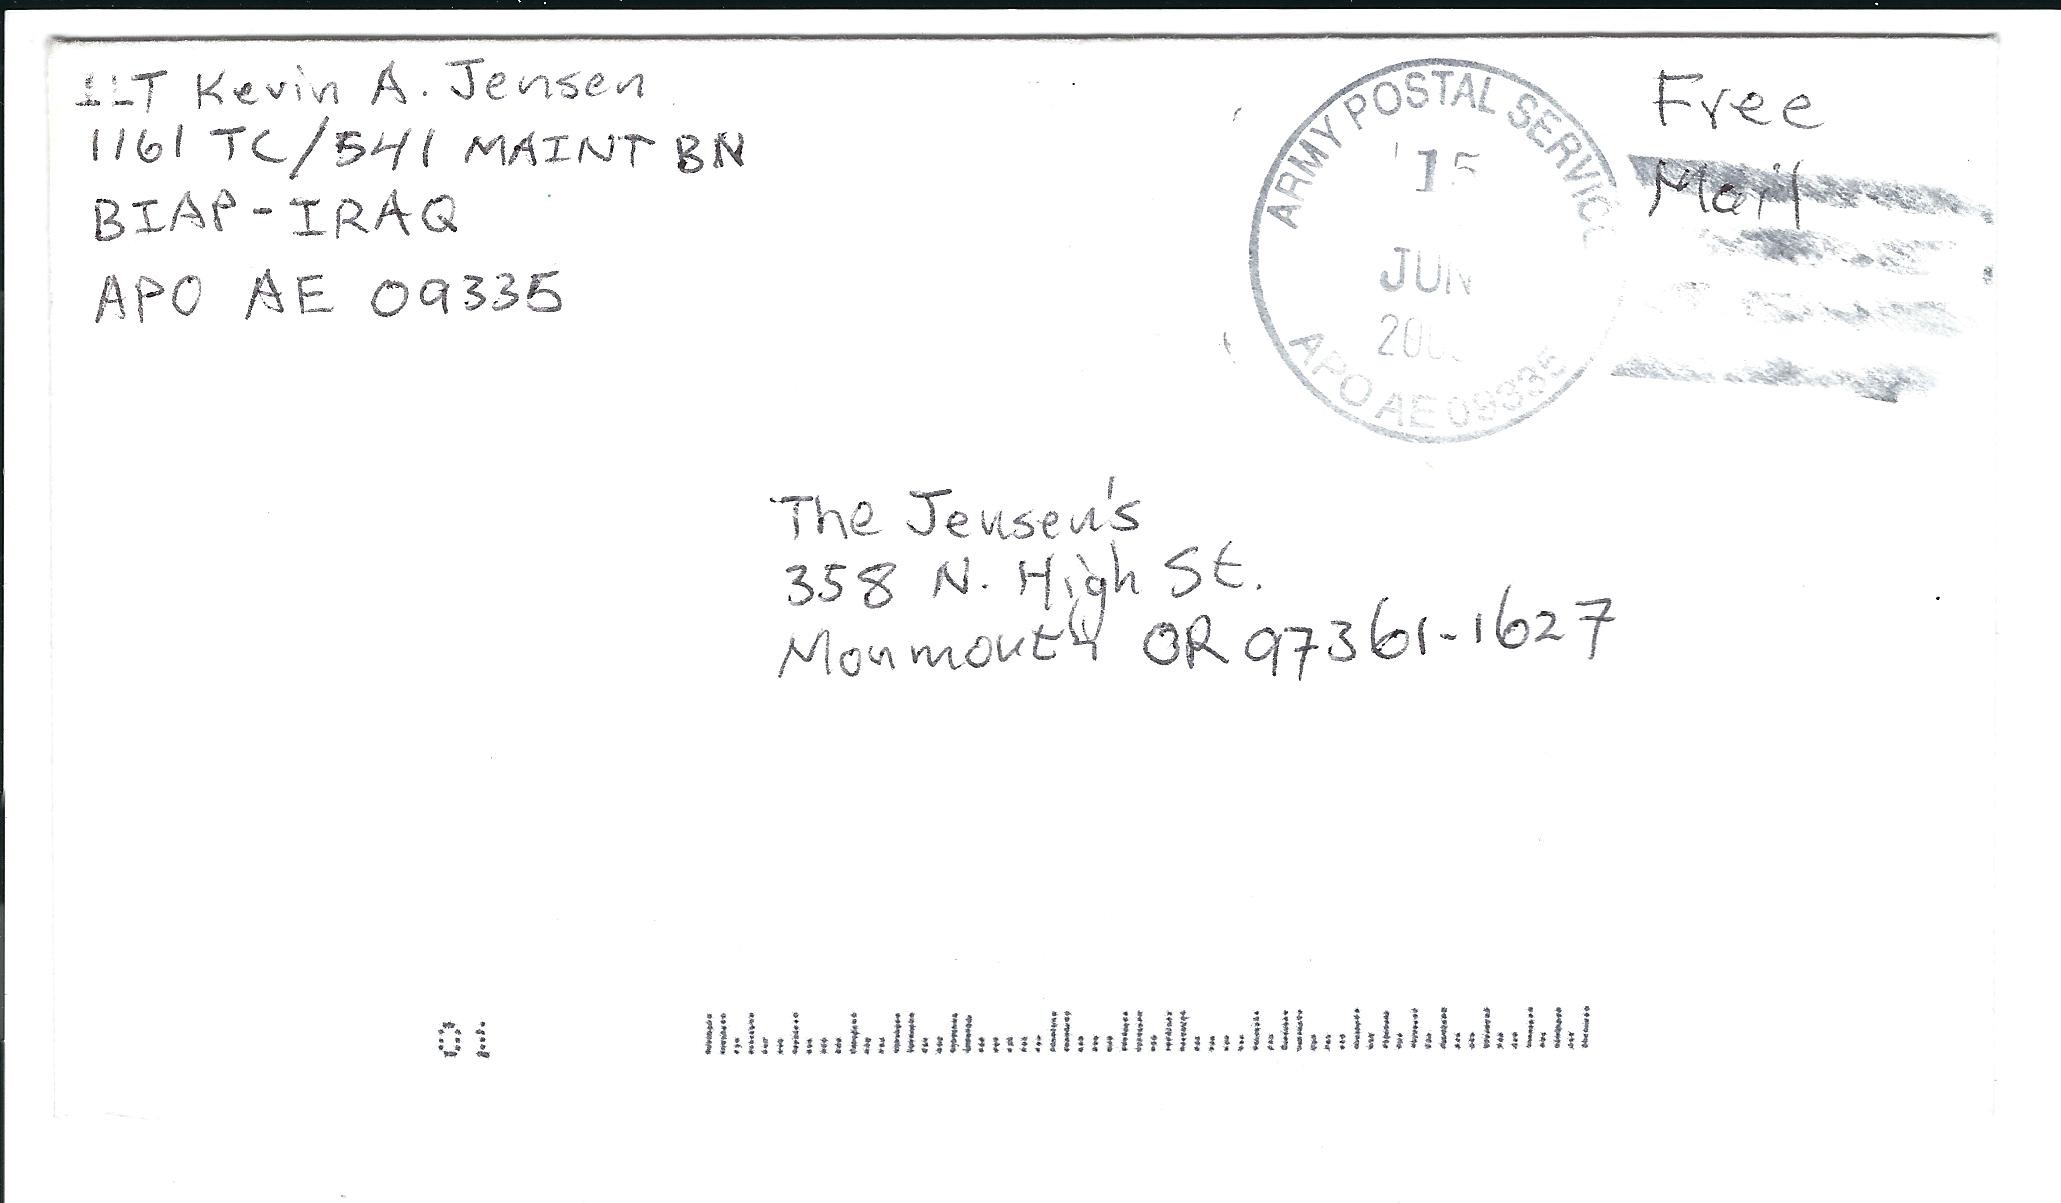 1LT Kevin A. Jensen
1161 TC/541 MAINT BN
BIAP-IRAQ
APO AE 09335
ARMY POSTAL SERVICE
15
JUN
APO AE 09335
Free
Mail
The Jensen's
358 N. High St.
Monmouth OR 97361-1627